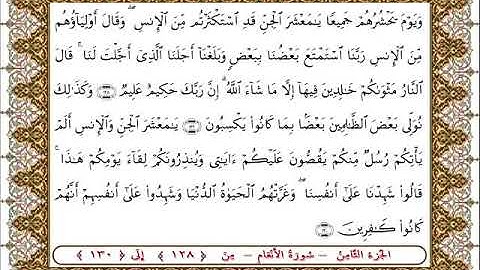 وَيَوْمَ يَحْشُرُهُمْ جَمِيعًا يَـٰمَعْشَرَ ٱلْجِنِّ قَدِ ٱسْتَكْثَرْتُم مِّنَ ٱلْإِنسِ ۖ وَقَالَ أَوْلِيَآؤُهُم
مِّنَ ٱلْإِنسِ رَبَّنَا ٱسْتَمْتَعَ بَعْضُنَا بِبَعْضٍ وَبَلَغْنَآ أَجَلَنَا ٱلَّذِىٓ أَجَّلْتَ لَنَا ۚ قَالَ
ٱلنَّارُ مَثْوَىٰكُمْ خَـٰلِدِينَ فِيهَآ إِلَّا مَا شَآءَ ٱللَّهُ ۗ إِنَّ رَبَّكَ حَكِيمٌ عَلِيمٌ ﴿١٢٨﴾ وَكَذَٰلِكَ
نُوَلِّى بَعْضَ ٱلظَّـٰلِمِينَ بَعْضًۢا بِمَا كَانُوا۟ يَكْسِبُونَ ﴿١٢٩﴾ يَـٰمَعْشَرَ ٱلْجِنِّ وَٱلْإِنسِ أَلَمْ
يَأْتِكُمْ رُسُلٌ مِّنكُمْ يَقُصُّونَ عَلَيْكُمْ ءَايَـٰتِى وَيُنذِرُونَكُمْ لِقَآءَ يَوْمِكُمْ هَـٰذَا ۚ
قَالُوا۟ شَهِدْنَا عَلَىٰٓ أَنفُسِنَا ۖ وَغَرَّتْهُمُ ٱلْحَيَوٰةُ ٱلدُّنْيَا وَشَهِدُوا۟ عَلَىٰٓ أَنفُسِهِمْ أَنَّهُمْ
كَانُوا۟ كَـٰفِرِينَ ﴿١٣٠﴾
الجزء الثامن - سورة الأنعام - من ﴿ ١٢٨ ﴾ إلى ﴿ ١٣٠ ﴾